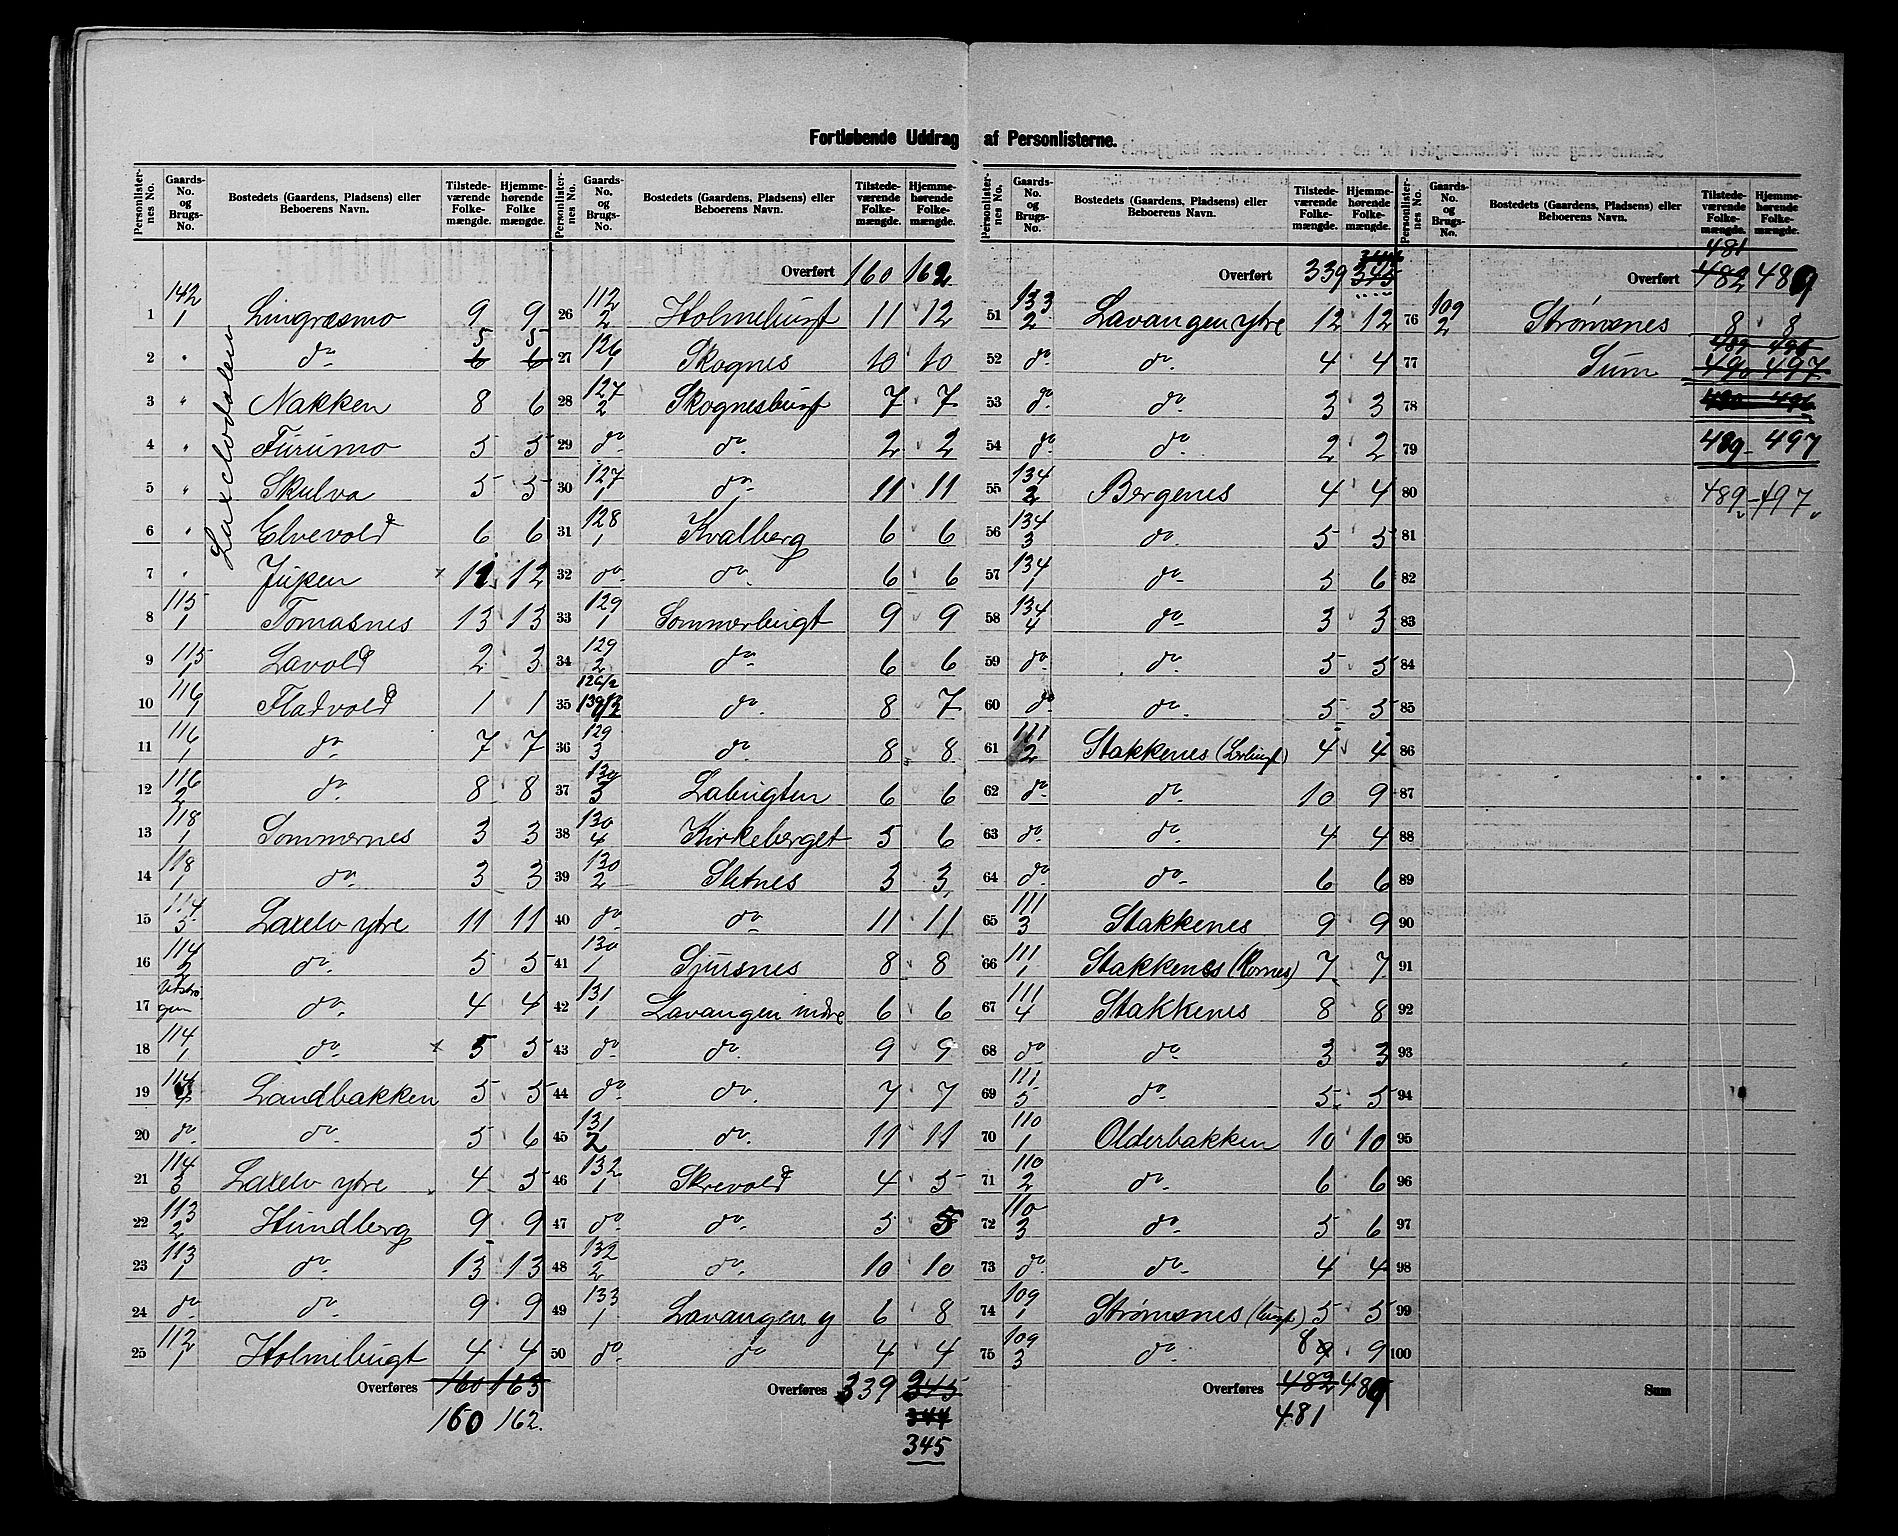 Fortløbende Uddrag af Personlisterne.
Personlister-nes No. Gaards-No. og Brugs-No. Bostedets (Gaardens, Pladsens) eller Beboerens Navn. Tilstede-værende Folke-mængde. Hjemme-hørende Folke-mængde.
Laxelvdalen
1 142/1 Lingræsmo 9 9
2 " do 6 5 6 5
3 " Nakken 8 6
4 " Furumo 5 5
5 " Skulva 5 5
6 " Elvevold 6 6
7 " × 11 12
8 115/1 Tomasnes 13 13
9 115/1 Lavold 2 3
10 116/1 Fladvold 1 1
11 116/1 do 7 7
12 116/2 do 8 8
13 118/1 Sommernes 3 3
14 118/1 do 3 3
15 114/5 Laxelv ytre 11 11
16 114/2 do 5 5
17 do 4 4
18 114/1 do × 5 5
19 114/4 Landbakken 5 5
20 do do 5 6
21 114/3 Laxelv ytre 4 5
22 113/2 Hundberg 9 9
23 113/1 do 13 13
24 do do 9 9
25 112/1 Holmebugt 4 4
Overføres 160 163
160 162.
Personlister-nes No. Gaards-No. og Brugs-No. Bostedets (Gaardens, Pladsens) eller Beboerens Navn. Tilstede-værende Folke-mængde. Hjemme-hørende Folke-mængde.
Overført 160 162
26 112/2 Holmebugt 11 12
27 126/1 Skognes 10 10
28 127/2 Skognesbugt 7 7
29 do do 2 2
30 127/1 do 11 11
31 128/1 Kvalberg 6 6
32 do do 6 6
33 129/1 Sommerbugt 9 9
34 129/2 do 6 6
35 126/2 do 8 7
36 129/3 do 8 8
37 130/3 Labugten 6 6
38 130/4 Kirkeberget 5 6
39 130/2 Sletnes 3 3
40 do do 11 11
41 130/1 Sjursnes 8 8
42 131/1 Lavangen indre 6 6
43 do do 9 9
44 do do 7 7
45 131/2 do 11 11
46 132/1 Skrevold 4 5
47 do do 5 5
48 132/2 do 10 10
49 133/1 Lavangen y 6 8
50 do do 4 4
Overføres 339 345
344
345
Personlister-nes No. Gaards-No. og Brugs-No. Bostedets (Gaardens, Pladsens) eller Beboerens Navn. Tilstede-værende Folke-mængde. Hjemme-hørende Folke-mængde.
344
Overført 339 345
51 133/2 Lavangen ytre 12 12
52 do do 4 4
53 do do 3 3
54 do do 2 2
55 134/2 Bergenes 4 4
56 134/3 do 5 5
57 134/1 do 5 6
58 134/4 do 3 3
59 do do 5 5
60 do do 5 5
61 111/2 Stakkenes 4 4
62 do do 10 9
63 do do 4 4
64 do do 6 6
65 111/3 Stakkenes 9 9
66 111/1 Stakkenes 7 7
67 111/4 Stakkenes 8 8
68 do do 3 3
69 111/5 do 5 5
70 110/1 Olderbakken 10 10
71 110/2 do 6 6
72 110/3 do 5 6
73 do do 4 4
74 109/1 Strømsnes (bugt) 5 5
75 109/3 do 8 9 9
Overføres 482 489
481
Personlister-nes No. Gaards-No. og Brugs-No. Bostedets (Gaardens, Pladsens) eller Beboerens Navn. Tilstede-værende Folke-mængde. Hjemme-hørende Folke-mængde.
481
Overført 482 489
76 109/2 Strømsnes 8 8
489 496
77 Sum 490 497
78 490 496
79 489 - 497
80 489 - 497
81
82
83
84
85
86
87
88
89
90
91
92
93
94
95
96
97
98
99
100
Sum